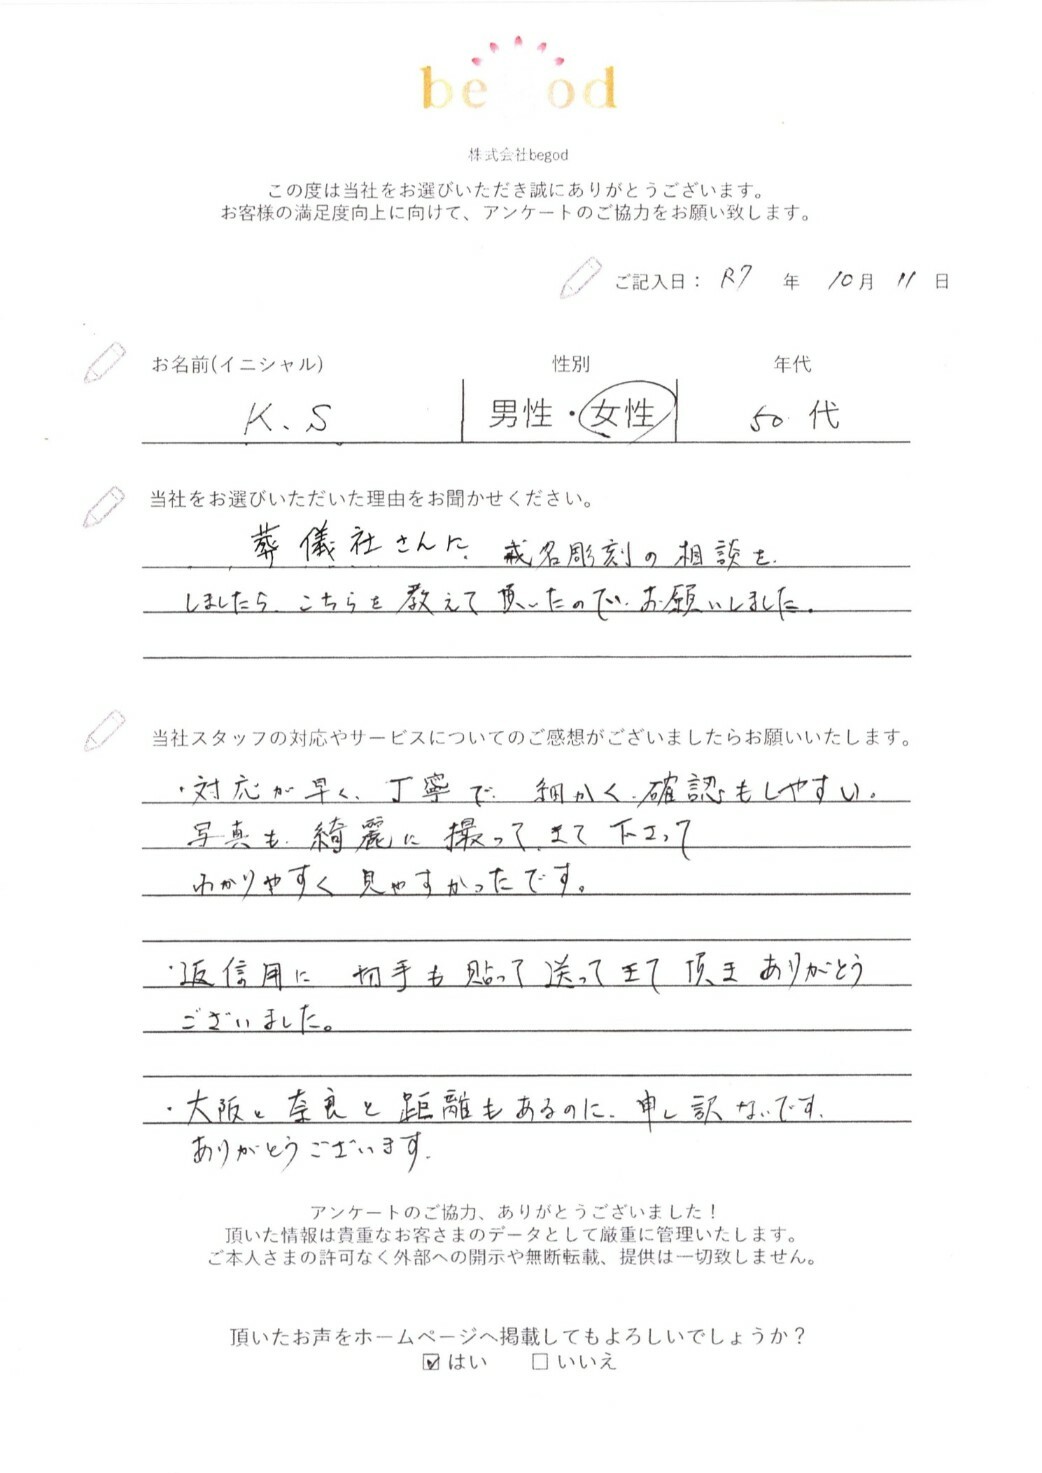 be od
株式会社begod
この度は当社をお選びいただき誠にありがとうございます。
お客様の満足度向上に向けて、アンケートのご協力をお願い致します。
ご記入日： R7 年 10月 11日
お名前(イニシャル) 性別 年代
K.S 男性・女性 50代
当社をお選びいただいた理由をお聞かせください。
葬儀社さんに、戒名彫刻の相談を
しましたら、こちらを教えて頂いたので、お願いしました。
当社スタッフの対応やサービスについてのご感想がございましたらお願いいたします。
・対応が早く、丁寧で、細かく、確認もしやすい。
写真も、綺麗に撮って、きて下さって
わかりやすく見やすかったです。
・返信用に 切手も貼って送ってきて頂き ありがとう
ございました。
・大阪と奈良と距離もあるのに、申し訳ないです。
ありがとうございます。
アンケートのご協力、ありがとうございました！
頂いた情報は貴重なお客さまのデータとして厳重に管理いたします。
ご本人さまの許可なく外部への開示や無断転載、提供は一切致しません。
頂いたお声をホームページへ掲載してもよろしいでしょうか？
☑はい □いいえ